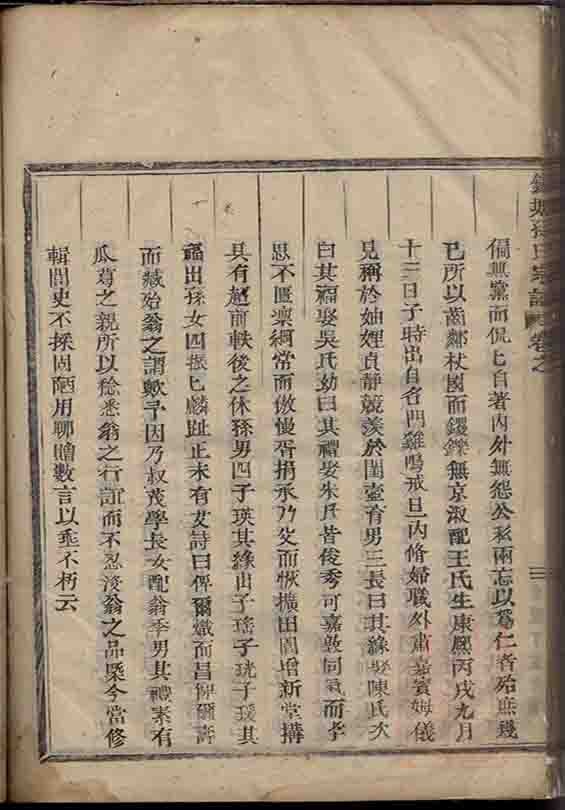 孫氏宗譜 卷之
偏無黨而侃匕自著內外無怨公私兩忘以爲仁者殆庶幾
已所以齒鄰杖國而鑁鑠無京淑配王氏生康熙丙戌九月
十三日子時出自名門雞鳴戒旦內脩婦職外肅嘉賓婦儀
見稱於妯娌貞靜競羡於閨壼育男三長曰其緣娶陳氏次
曰其福娶吳氏幼曰其禮娶朱氏皆俊秀可嘉敦同氣而孝
思不匱凜綱常而傲慢胥捐承乃父而恢擴田園增新堂搆
具有超前軼後之休孫男四子瑛其緣出子瑤子珖子瑗其
福出孫女四振匕麟趾正未有艾詩曰俾爾熾而昌俾爾壽
而藏殆翁之謂歟予因乃叔茂學長女配翁季男其禮素有
瓜葛之親所以稔悉翁之行誼而不忍沒翁之品槩今當修
輯間史不採固陋用聊贈數言以垂不朽云